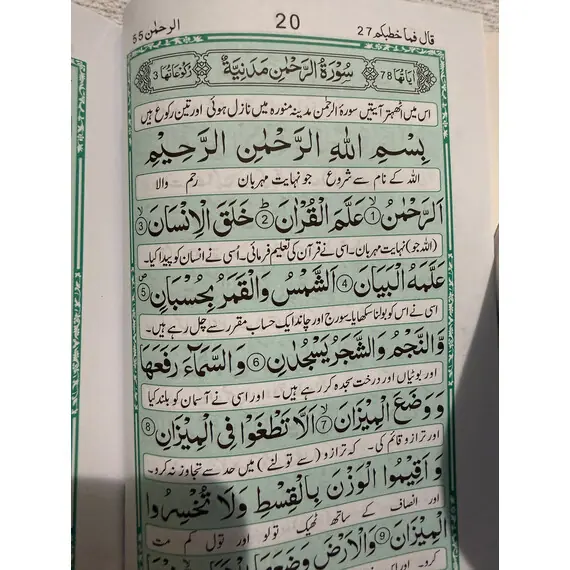 قال فما خطبكم 27
20
الرحمٰن 55
اٰیَاتُهَا 78
سُوْرَةُ الرَّحْمٰنِ مَدَنِيَّةٌ
رُكُوْعَاتُهَا 3
اس میں اٹھہتر آیتیں سورۂ الرحمٰن مدینہ منورہ میں نازل ہوئی اور تین رکوع ہیں
بِسْمِ اللّٰهِ الرَّحْمٰنِ الرَّحِيْمِ
اللہ کے نام سے شروع جو نہایت مہربان رحم والا
اَلرَّحْمٰنُ ۙ 1 عَلَّمَ الْقُرْاٰنَ ؕ 2 خَلَقَ الْاِنْسَانَ ۙ 3
(اللہ جو) نہایت مہربان۔ اسی نے قرآن کی تعلیم فرمائی۔ اُسی نے انسان کو پیدا کیا۔
عَلَّمَهُ الْبَيَانَ 4 اَلشَّمْسُ وَالْقَمَرُ بِحُسْبَانٍ ۪ 5
اسی نے اس کو بولنا سکھایا۔ سورج اور چاند ایک حساب مقرر سے چل رہے ہیں۔
وَّالنَّجْمُ وَالشَّجَرُ يَسْجُدٰنِ 6 وَالسَّمَآءَ رَفَعَهَا
اور بوٹیاں اور درخت سجدہ کر رہے ہیں۔ اور اسی نے آسمان کو بلند کیا
وَوَضَعَ الْمِيْزَانَ ۙ 7 اَلَّا تَطْغَوْا فِى الْمِيْزَانِ 8
اور ترازو قائم کی۔ کہ ترازو (سے تولنے) میں حد سے تجاوز نہ کرو۔
وَاَقِيْمُوا الْوَزْنَ بِالْقِسْطِ وَلَا تُخْسِرُوا
اور انصاف کے ساتھ ٹھیک تولو اور تول کم مت
الْمِيْزَانَ 9 وَالْاَرْضَ وَضَعَهَا
کرو۔